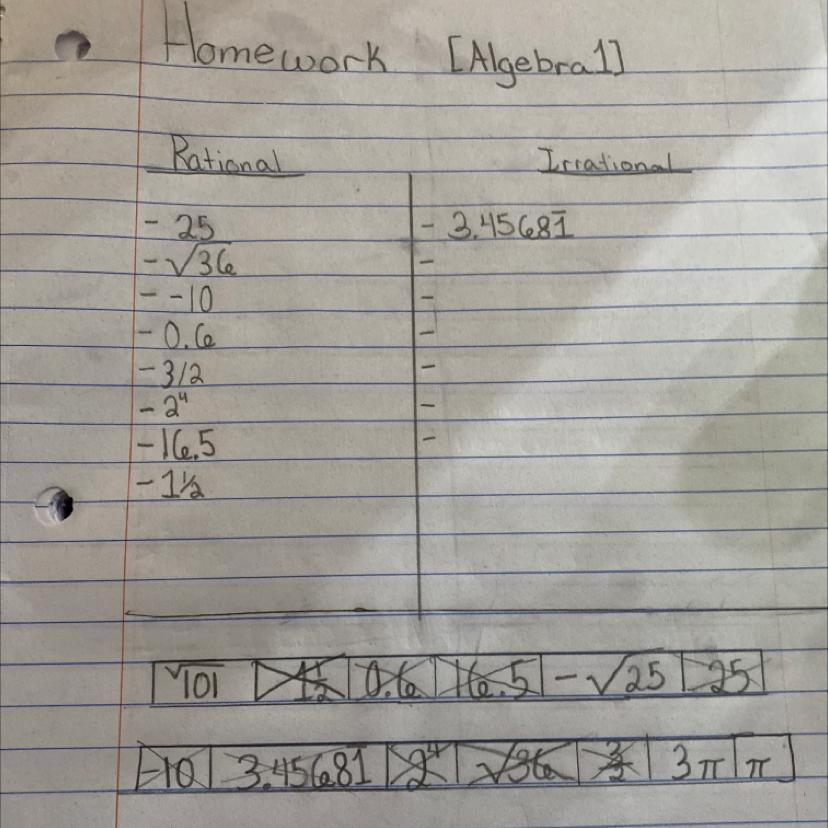 Homework [Algebra1]
Rational Irrational
- 25 - 3.45681̅
- √36 -
- -10 -
- 0.6 -
- 3/2 -
- 2⁴ -
- 16.5 -
- 1½
√101 1½ 0.6 16.5 -√25 25
-10 3.45681̅ 2⁴ √36 3/2 3π π